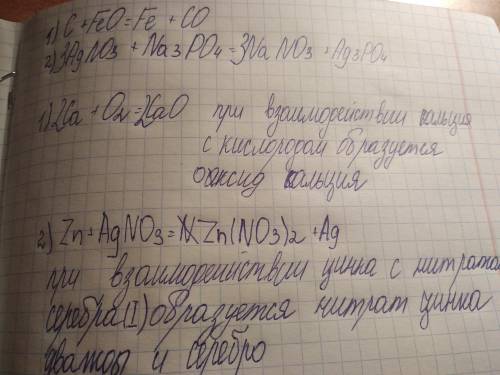 1) C + FeO = Fe + CO
2) 3AgNO3 + Na3PO4 = 3NaNO3 + Ag3PO4
1) 2Ca + O2 = 2CaO при взаимодействии кальция
с кислородом образуется
оксид кальция
2) Zn + AgNO3 = Zn(NO3)2 + Ag
при взаимодействии цинка с нитратом
серебра(I) образуется нитрат цинка
дважды и серебро